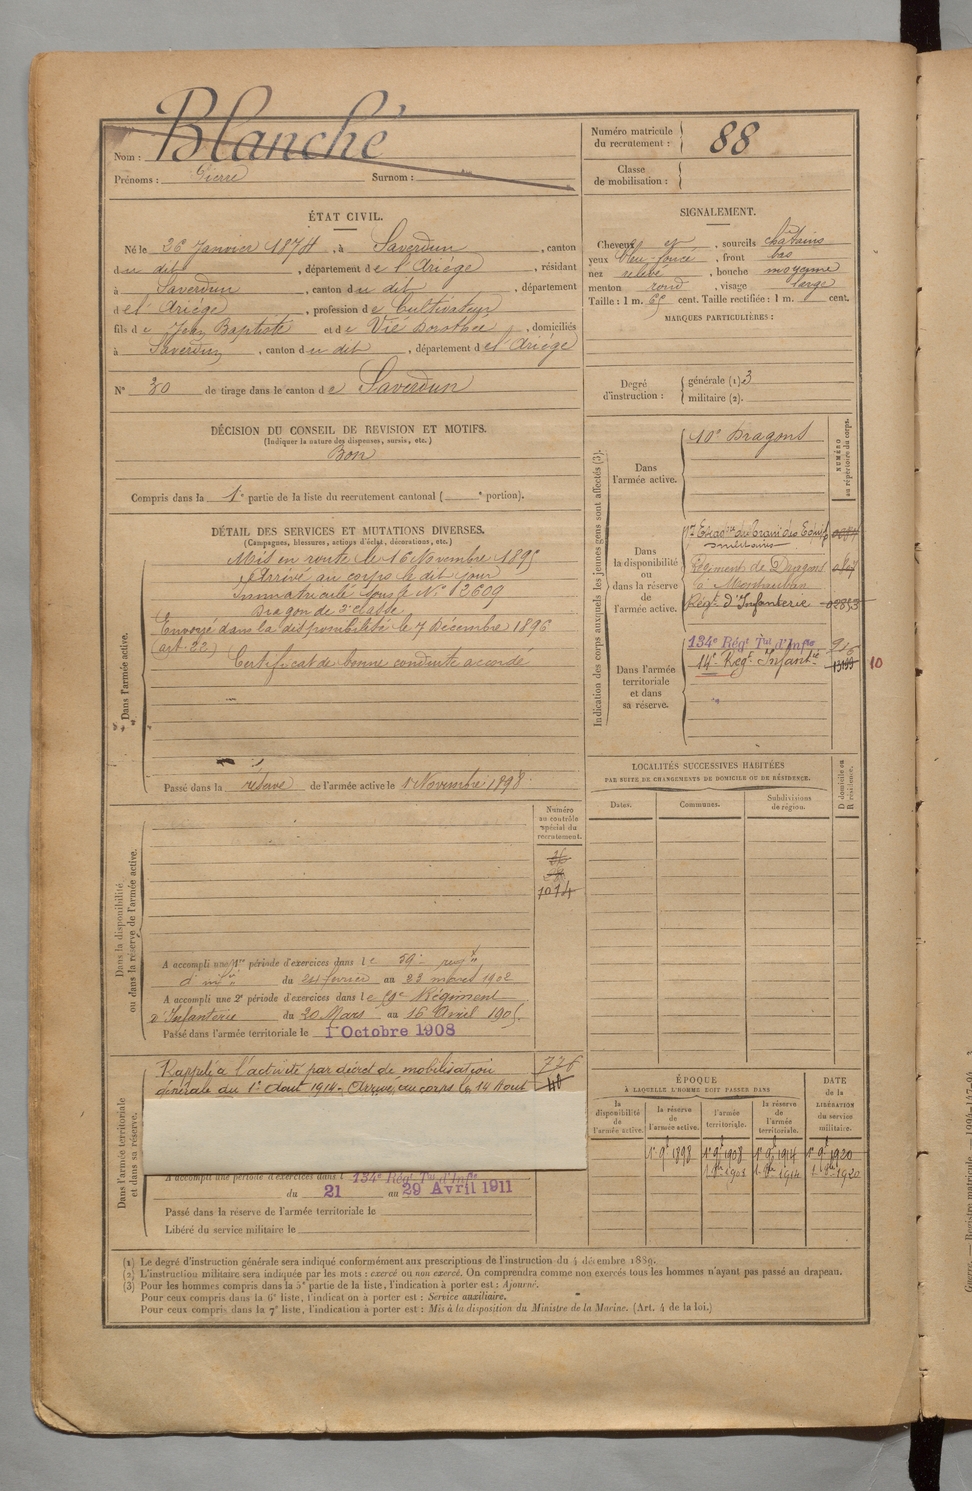 Nom : Blanché
Prénoms : Pierre Surnom :
Numéro matricule du recrutement : 88
Classe de mobilisation :
ÉTAT CIVIL.
Né le 26 Janvier 1874, à Saverdun, canton
du dit, département de l'Ariège, résidant
à Saverdun, canton du dit, département
de l'Ariège, profession de Cultivateur
fils de Jean Baptiste et de Vié Dorothée, domiciliés
à Saverdun, canton du dit, département de l'Ariège
N° 30 de tirage dans le canton de Saverdun
DÉCISION DU CONSEIL DE REVISION ET MOTIFS.
(Indiquer la nature des dispenses, sursis, etc.)
Bon
Compris dans la 1e partie de la liste du recrutement cantonal ( e portion).
DÉTAIL DES SERVICES ET MUTATIONS DIVERSES.
(Campagnes, blessures, actions d'éclat, décorations, etc.)
Dans l'armée active.
Mis en route le 16 Novembre 1895
Arrivé au corps le dit jour
Immatriculé sous le N° 2609
Dragon de 2e classe
Envoyé dans la disponibilité le 7 Décembre 1896
(art. 22)
Certificat de bonne conduite accordé
Passé dans la réserve de l'armée active le 1 Novembre 1898
Dans la disponibilité
ou dans la réserve de l'armée active.
Numéro
au contrôle
spécial du
recrutement.
1074
A accompli une 1re période d'exercices dans le 59e regt
d'infie du 24 fevrier au 23 mars 1902
A accompli une 2e période d'exercices dans le 59e Régiment
d'Infanterie du 20 Mars au 16 Avril 1905
Passé dans l'armée territoriale le 1 Octobre 1908
Dans l'armée territoriale
et dans sa réserve.
Rappelé à l'activité par décret de mobilisation
générale du 1er Aout 1914. Arrivé au corps le 14 Aout
A accompli une période d'exercices dans l 134e Régt Tal d'Infie
du 21 au 29 Avril 1911
Passé dans la réserve de l'armée territoriale le
Libéré du service militaire le
SIGNALEMENT.
Cheveux et, sourcils châtains
yeux bleu foncé, front bas
nez relevé, bouche moyenne
menton rond, visage large
Taille : 1 m. 65 cent. Taille rectifiée : 1 m. cent.
MARQUES PARTICULIÈRES :
Degré d'instruction : générale (1) 3
militaire (2).
Indication des corps auxquels les jeunes gens sont affectés (3).
NUMÉRO
au répertoire du corps.
Dans
l'armée active.
10e Dragons
Dans
la disponibilité
ou
dans la réserve
de
l'armée active.
17e Escadon du train des Equip
militaires
Régiment de Dragons
à Montauban
Régt d'Infanterie
Dans l'armée
territoriale
et dans
sa réserve.
134e Régt Tal d'Infie
14e Régt Infantie
10
LOCALITÉS SUCCESSIVES HABITÉES
PAR SUITE DE CHANGEMENTS DE DOMICILE OU DE RÉSIDENCE.
D domicile ou
R résidence.
Dates. Communes. Subdivisions
de région.
ÉPOQUE
À LAQUELLE L'HOMME DOIT PASSER DANS
DATE
de la
LIBÉRATION
du service
militaire.
la
disponibilité
de
l'armée active.
la réserve
de
l'armée active.
l'armée
territoriale.
la réserve
de
l'armée
territoriale.
1er 9e 1898 1er 9e 1908 1er 9e 1914 1er 9e 1920
(1) Le degré d'instruction générale sera indiqué conformément aux prescriptions de l'instruction du 4 décembre 1889.
(2) L'instruction militaire sera indiquée par les mots : exercé ou non exercé. On comprendra comme non exercés tous les hommes n'ayant pas passé au drapeau.
(3) Pour les hommes compris dans la 5e partie de la liste, l'indication à porter est : Ajourné.
Pour ceux compris dans la 6e liste, l'indication à porter est : Service auxiliaire.
Pour ceux compris dans la 7e liste, l'indication à porter est : Mis à la disposition du Ministre de la Marine. (Art. 4 de la loi.)